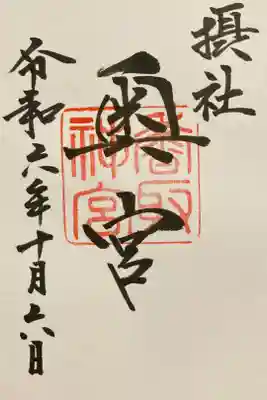 摂社
奥宮
香取
神宮
令和六年十月六日